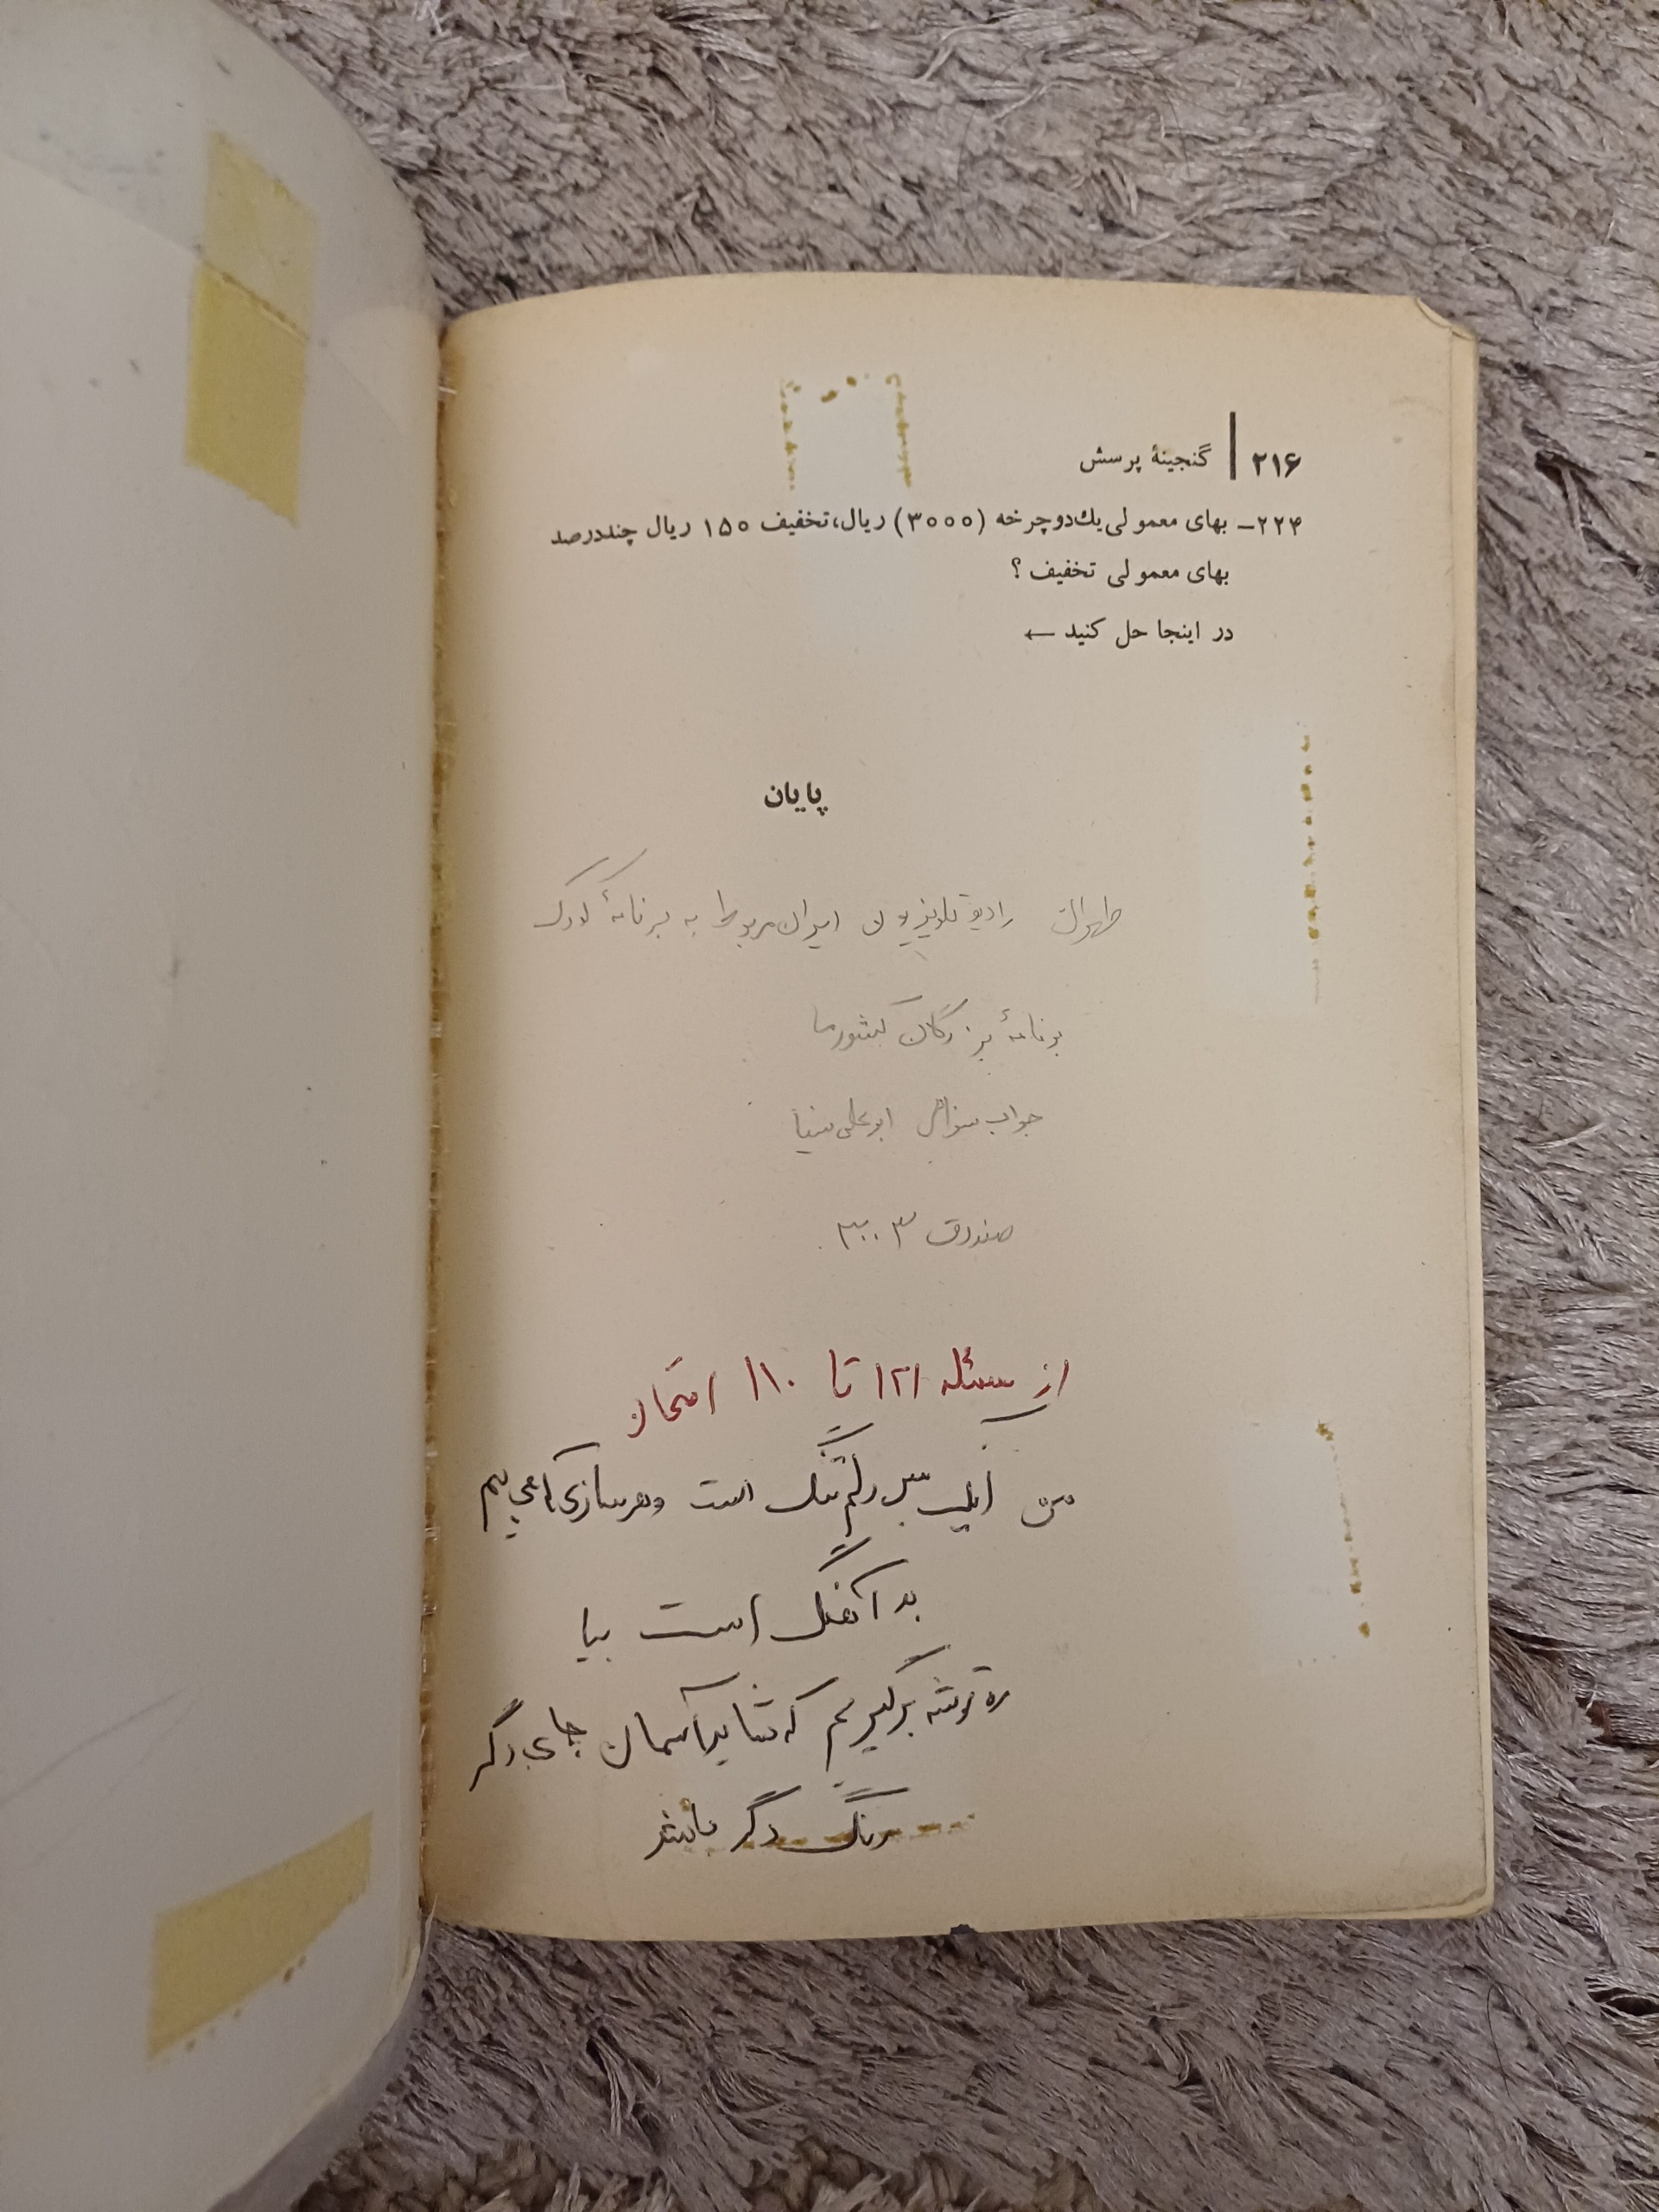 ۲۱۶ | گنجینهٔ پرسش
۲۲۴- بهای معمولی یك دوچرخه (۳۰۰۰) ریال، تخفیف ۱۵۰ ریال چنددرصد
بهای معمولی تخفیف ؟
در اینجا حل کنید ←
پایان
طهران رادیو تلویزیون ایران مربوط به برنامهٔ کودک
برنامهٔ بزرگان کشور ما
جواب سؤال ابوعلی سینا
صندوق
از مسئله ۱۲۱ تا ۱۱۰ امتحان
من اینجا بس دلم تنگ است و هر سازی که می بینم
بد آهنگ است بیا
ره توشه برگیریم که شاید آسمان جای دگر
رنگ دگر باشد